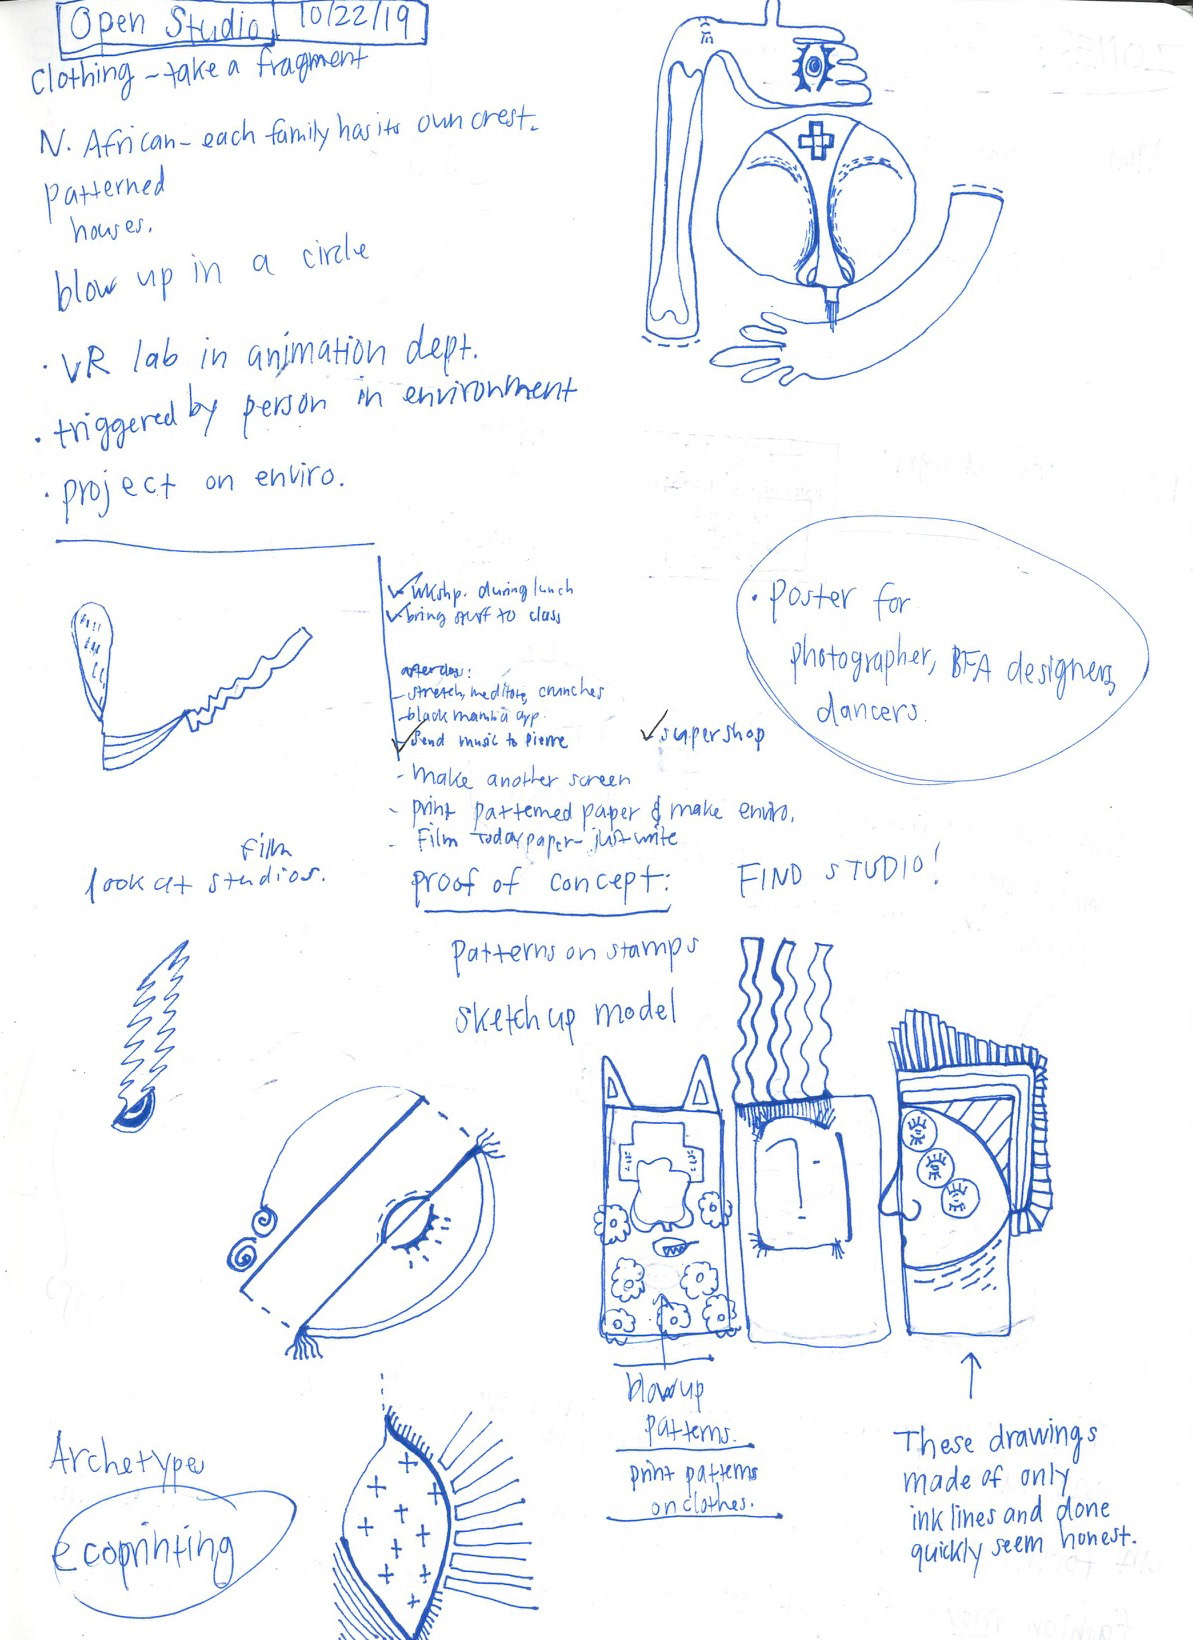 Open Studio 10/22/19
Clothing - take a fragment
N. African - each family has its own crest.
patterned
houses.
blow up in a circle
· VR lab in animation dept.
· triggered by person in environment
· project on enviro.
✓ wkshp. during lunch
✓ bring stuff to class
after class:
- stretch, meditate, crunches
- black mamba app.
✓ send music to Pierre
✓ supershop
- make another screen
- print patterned paper & make enviro.
- Film today paper - just write
· Poster for
photographer, BFA designers,
dancers.
film
look at studios.
proof of concept:
FIND STUDIO!
patterns on stamps
sketch up model
blow up
patterns.
print patterns
on clothes.
Archetype
ecoprinting
These drawings
made of only
ink lines and done
quickly seem honest.